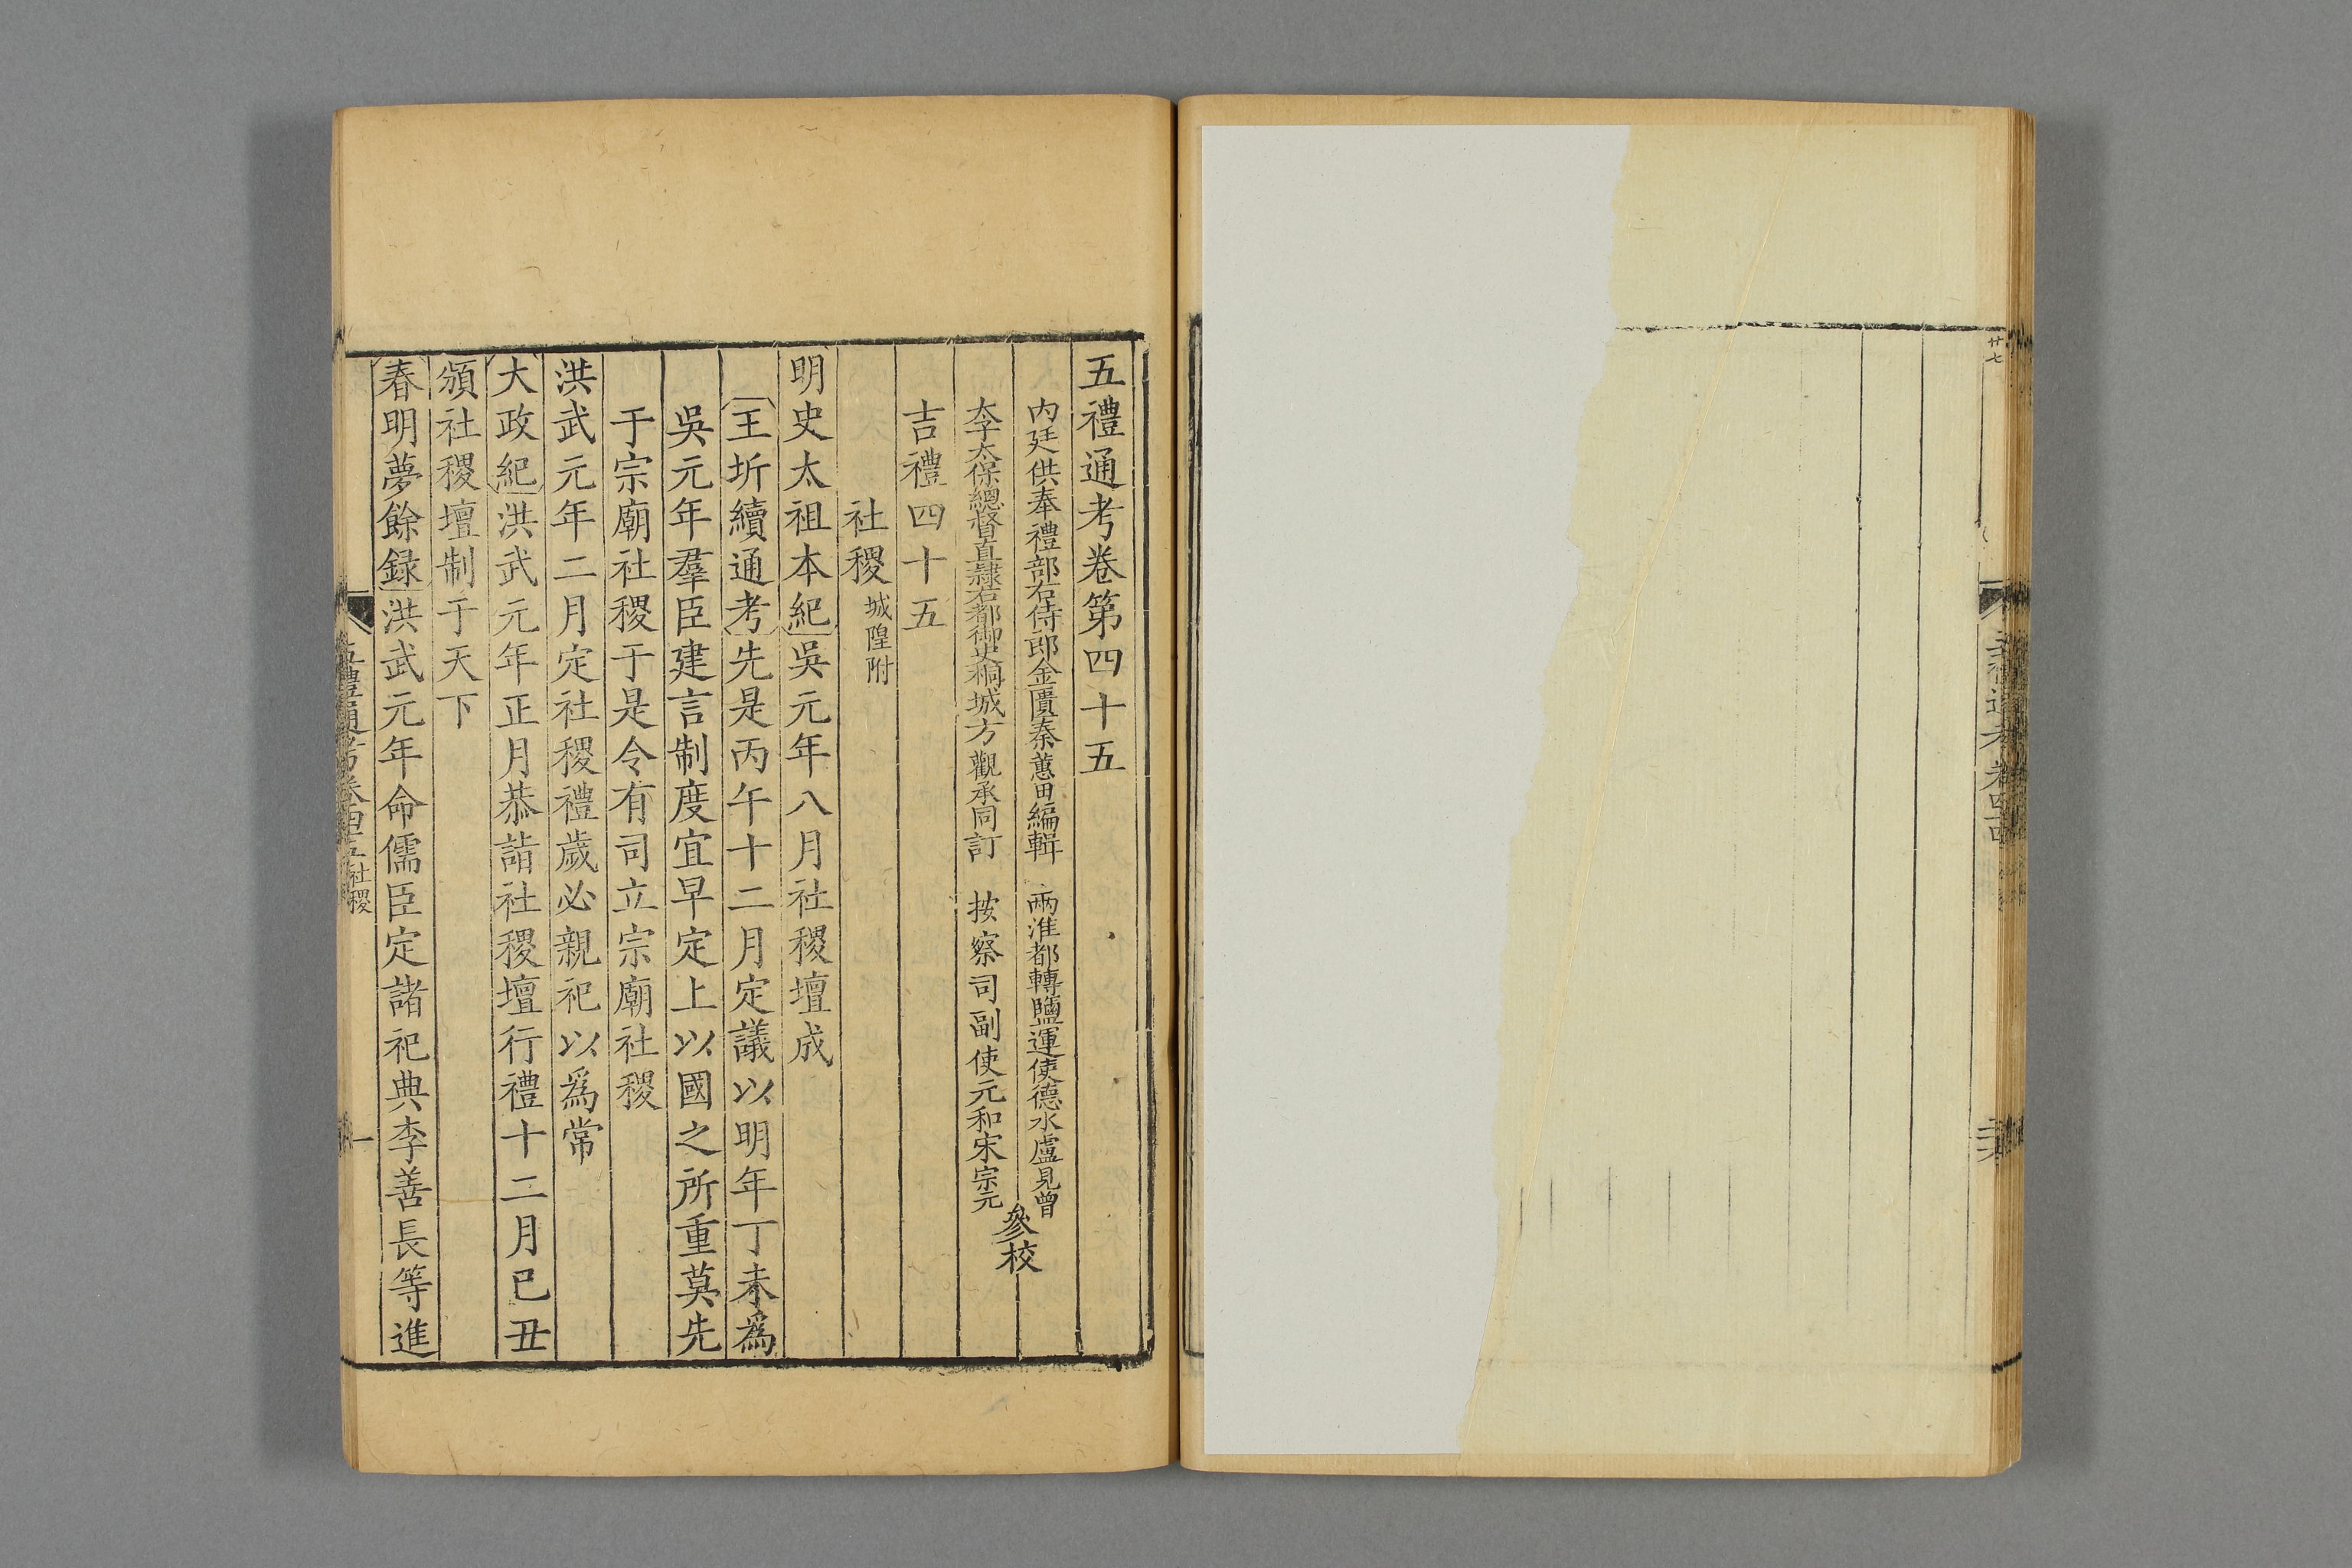 五禮通考卷第四十五
內廷供奉禮部右侍郎金匱秦蕙田編輯　兩淮都轉鹽運使德水盧見曾
太子太保總督直隸右都御史桐城方觀承同訂　按察司副使元和宋宗元
參校
吉禮四十五
社稷城隍附
明史太祖本紀吳元年八月社稷壇成
王圻續通考先是丙午十二月定議以明年丁未爲
吳元年羣臣建言制度宜早定上以國之所重莫先
于宗廟社稷于是令有司立宗廟社稷
洪武元年二月定社稷禮歲必親祀以爲常
大政紀洪武元年正月恭詣社稷壇行禮十二月已丑
頒社稷壇制于天下
春明夢餘録洪武元年命儒臣定諸祀典李善長等進
五禮通考卷四十五
社稷
一
廿七
五禮通考
卷四十四